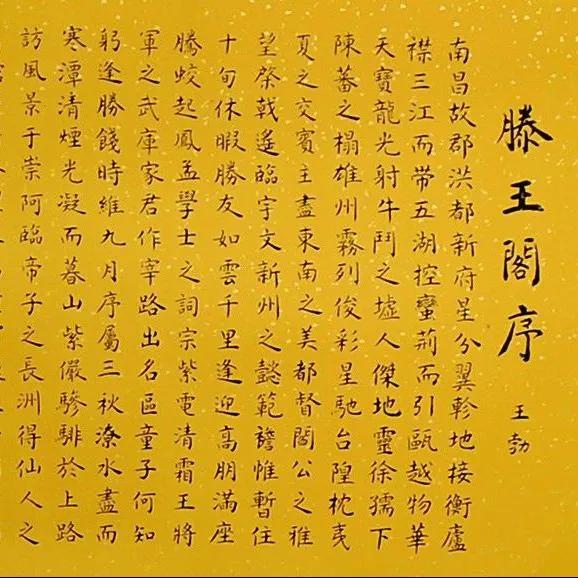 滕王閣序
王勃
南昌故郡洪都新府星分翼軫地接衡廬
襟三江而帶五湖控蠻荊而引甌越物華
天寶龍光射牛鬥之墟人傑地靈徐孺下
陳蕃之榻雄州霧列俊彩星馳台隍枕夷
夏之交賓主盡東南之美都督閻公之雅
望棨戟遙臨宇文新州之懿範襜帷暫住
十旬休暇勝友如雲千里逢迎高朋滿座
騰蛟起鳳孟學士之詞宗紫電清霜王將
軍之武庫家君作宰路出名區童子何知
躬逢勝餞時維九月序屬三秋潦水盡而
寒潭清煙光凝而暮山紫儼驂騑於上路
訪風景于崇阿臨帝子之長洲得仙人之